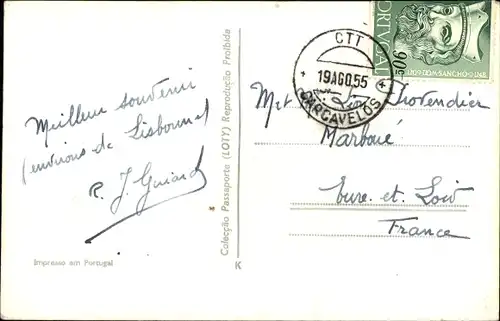 Meilleur souvenir
(environs de Lisbonne)
R. J. Guiard
Impresso em Portugal
Colecção Passaporte (LOTY) Reprodução Proibida
K
CTT
19AGO.55
CARCAVELOS
PORTUGAL
$90
Met Léon
Marboué
Eure. et. Loir
France